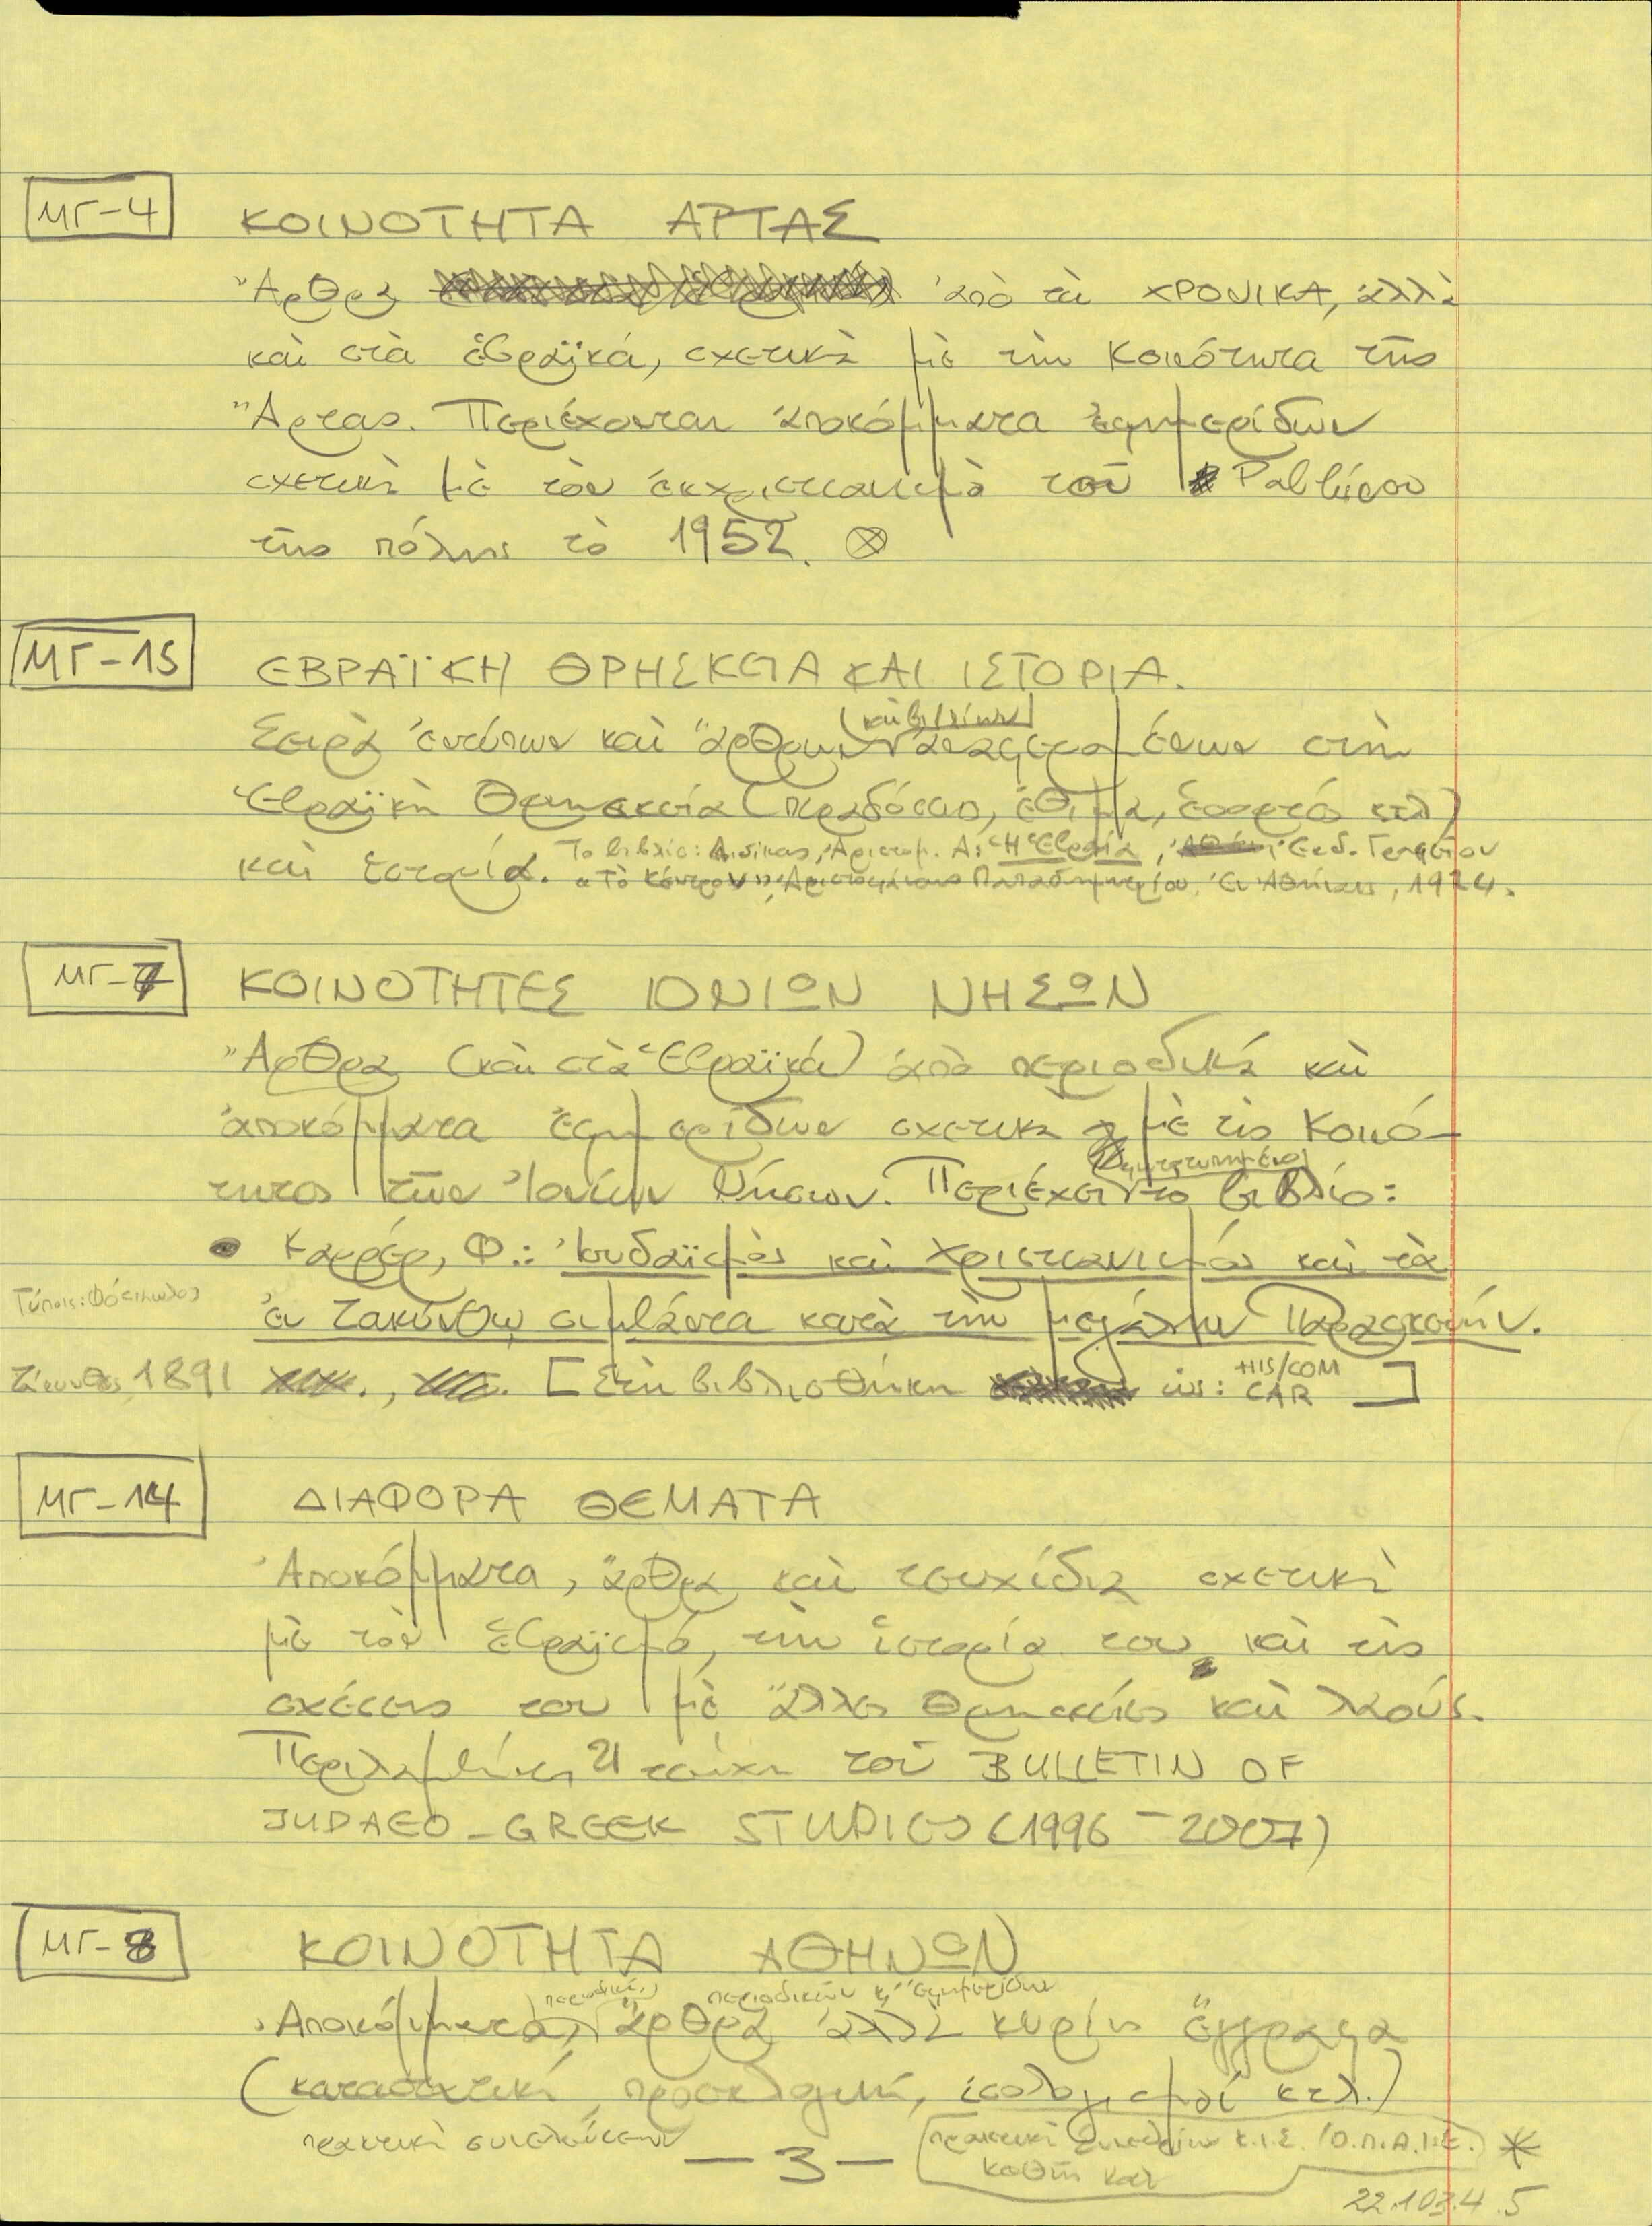 ΜΓ-4 ΚΟΙΝΟΤΗΤΑ ΑΡΤΑΣ
Ἄρθρα ἀπὸ τὰ ΧΡΟΝΙΚΑ, ἀλλὰ
καὶ στὰ ἑβραϊκά, σχετικὰ μὲ τὴν Κοινότητα τῆς
Ἄρτας. Περιέχονται ἀποκόμματα ἐφημερίδων
σχετικὰ μὲ τὸν ἐκχριστιανισμὸ τοῦ Ραββίνου
τῆς πόλης τὸ 1952.
ΜΓ-15 ΕΒΡΑΪΚΗ ΘΡΗΣΚΕΙΑ ΚΑΙ ΙΣΤΟΡΙΑ.
(καὶ βιβλίων)
Σειρὰ ἐντύπων καὶ ἄρθρων ἀναφερομένων στὴν
Ἑβραϊκὴ Θρησκεία (παραδόσεις, ἔθιμα, ἑορτές κτλ)
Το βιβλίο: Ἀριστομ. Α: Ἡ Ἑβραία, Ἐκδ. Γραφείον
καὶ Ἱστορία. «Τὸ Κέντρον» Ἀριστομένους Παπαδημητρίου, Ἐν Ἀθήναις, 1924.
ΜΓ-7 ΚΟΙΝΟΤΗΤΕΣ ΙΟΝΙΩΝ ΝΗΣΩΝ
Ἄρθρα (καὶ στὰ Ἑβραϊκά) ἀπὸ περιοδικά καὶ
ἀποκόμματα ἐφημερίδων σχετικὰ μὲ τὶς Κοινό-
φωτοτυπημένο
τητες τῶν Ἰονίων Νήσων. Περιέχει το βιβλίο:
Καρρέρ, Φ.: Ἰουδαϊσμὸς καὶ Χριστιανισμός καὶ τὰ
ἐν Ζακύνθῳ συμβάντα κατὰ τὴν μεγάλην Παρασκευήν.
Ζάκυνθος, 1891 [Στὴ βιβλιοθήκη ὡς: HIS/COM
CAR ]
ΜΓ-14 ΔΙΑΦΟΡΑ ΘΕΜΑΤΑ
Ἀποκόμματα, ἄρθρα καὶ τευχίδια σχετικὰ
μὲ τὸν ἑβραϊσμό, τὴν ἱστορία του καὶ τὶς
σχέσεις του μὲ ἄλλες θρησκείες καὶ λαούς.
Περιλαμβάνει 21 τεύχη τοῦ BULLETIN OF
JUDAEO-GREEK STUDIES (1996-2007)
ΜΓ-8 ΚΟΙΝΟΤΗΤΑ ΑΘΗΝΩΝ
περιοδικῶν ἐφημερίδων
Ἀποκόμματα, ἄρθρα ἀλλὰ κυρίως ἔγγραφα
(καταστατικά, προεκλογικά, ἰσολογισμοί κτλ.)
πρακτικὰ συνελεύσεων
πρακτικὰ Συνεδρίων Κ.Ι.Σ. (Ο.Π.Α.Ι.Ε.) *
-3-
22.103.4.5